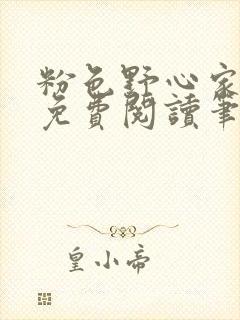 粉色野心家
免費閱讀筆
皇小帝